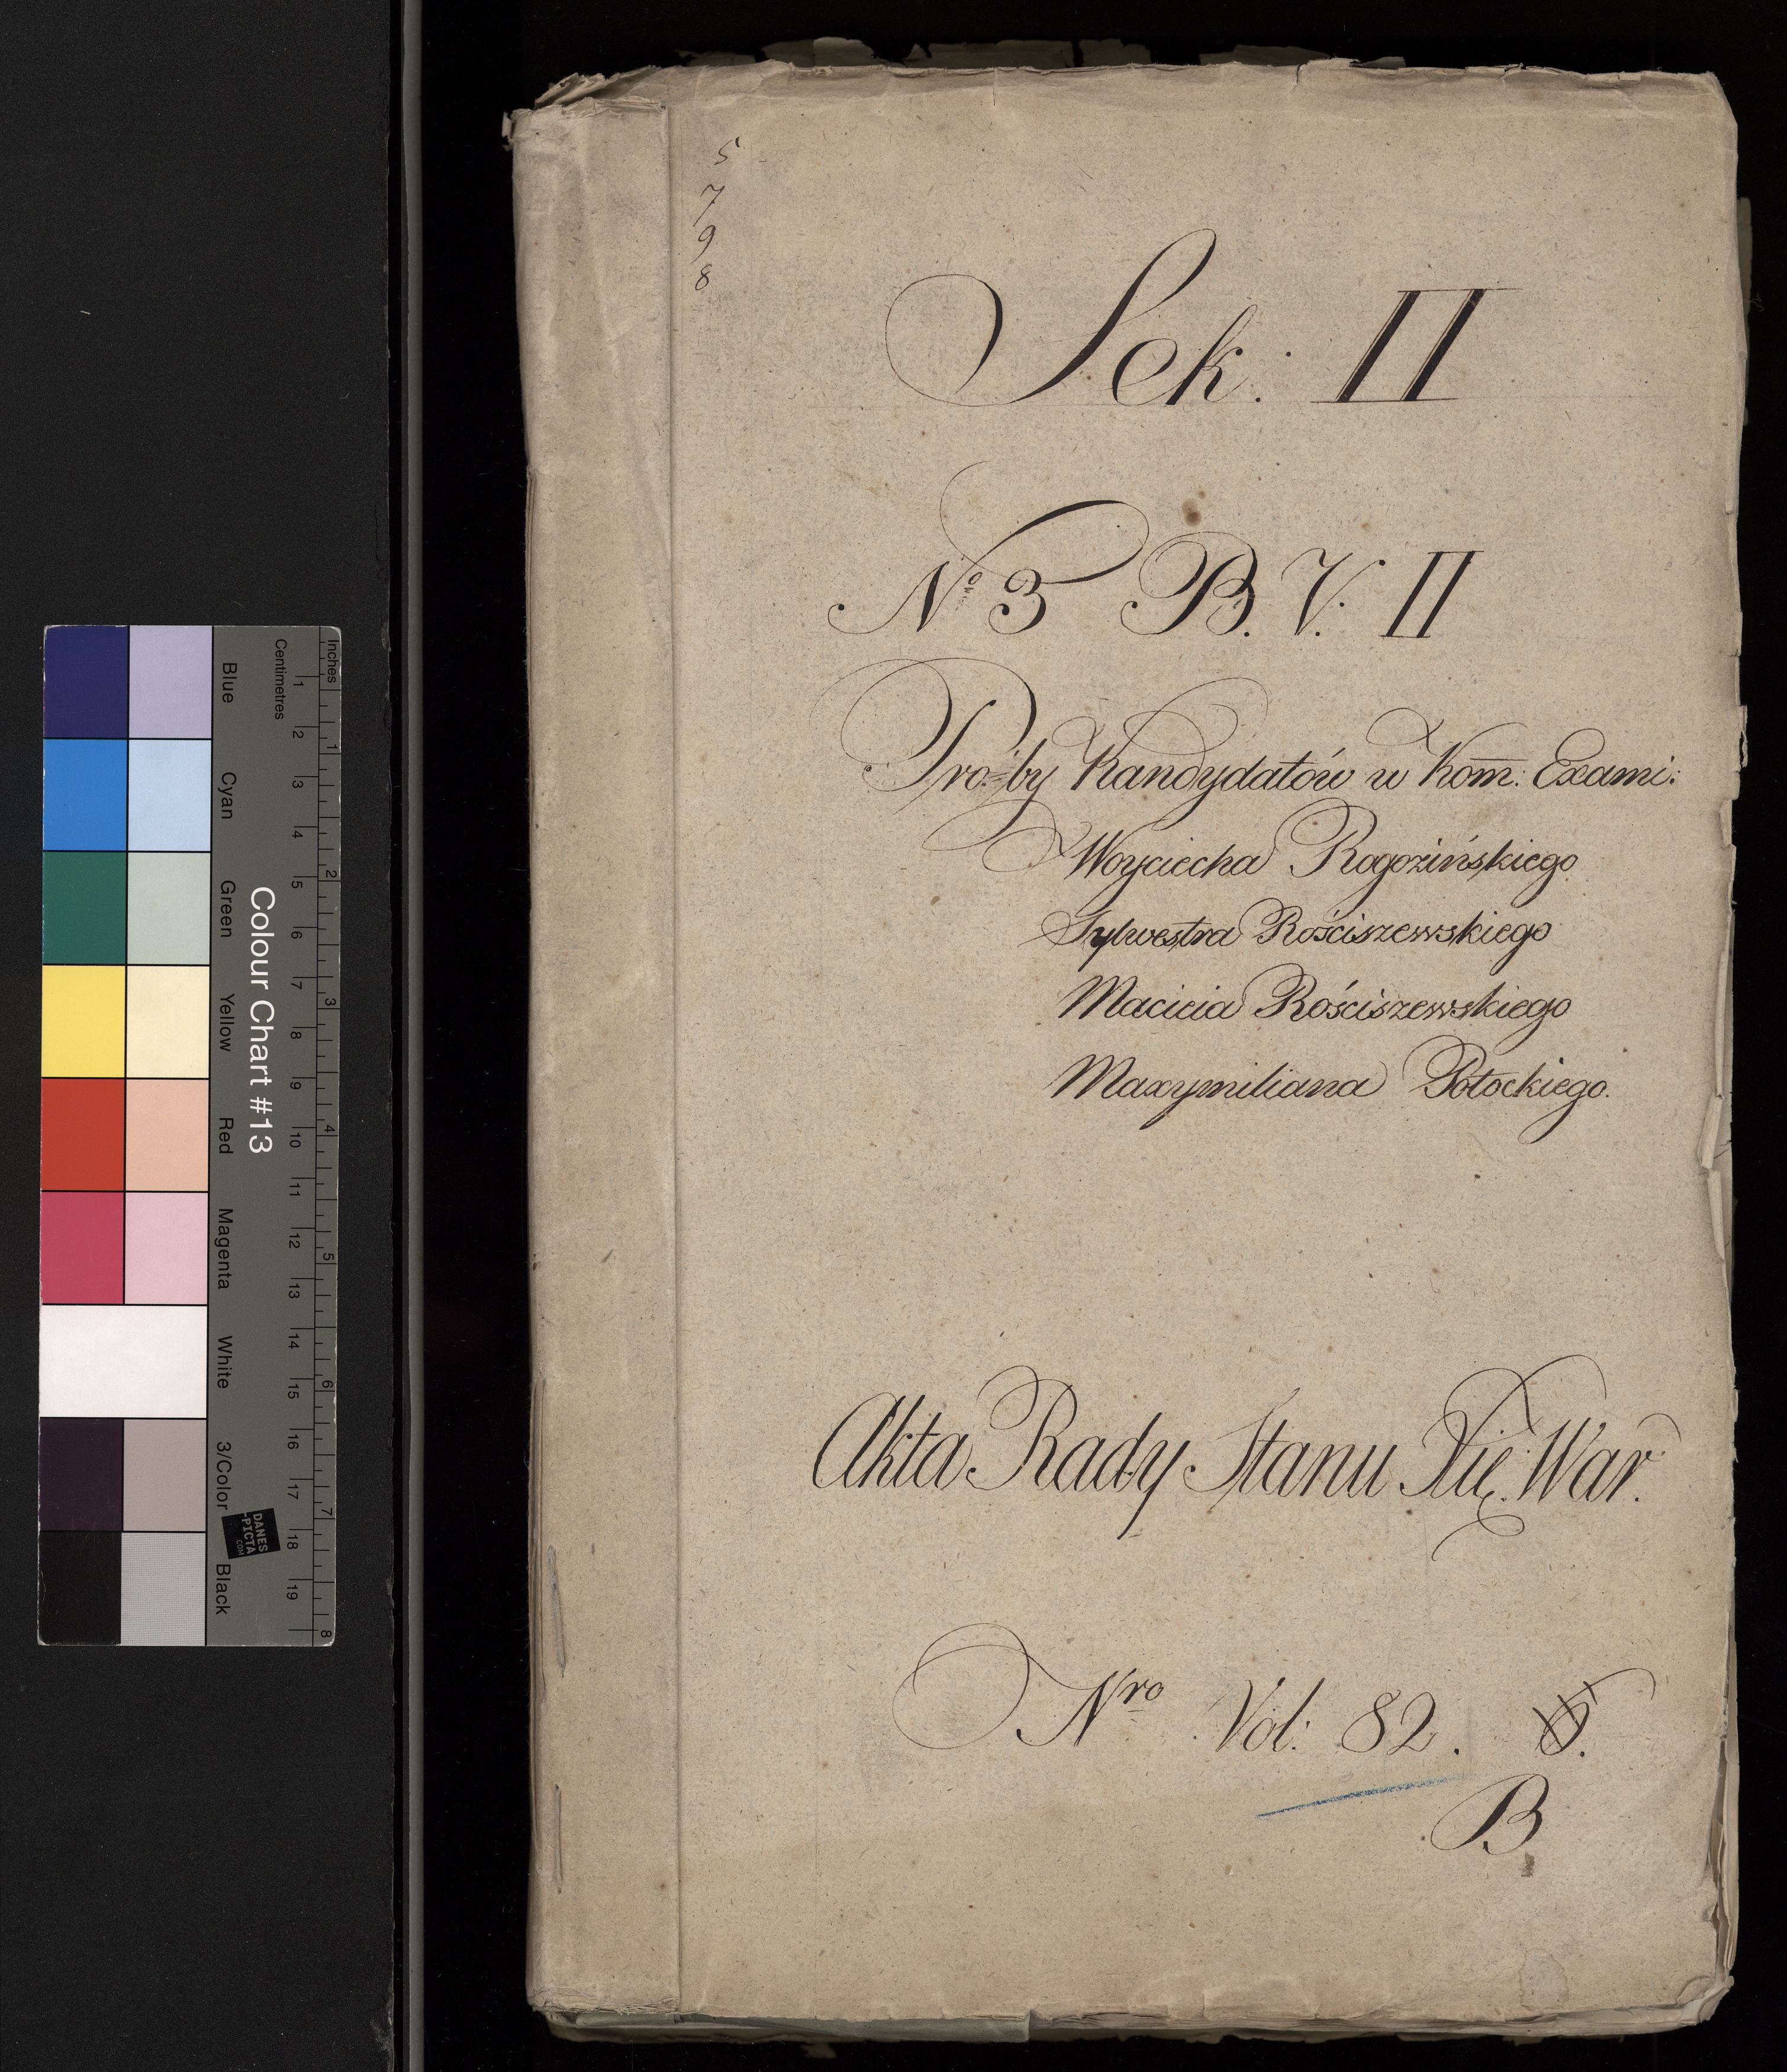 5
7
9
8
Sek: II
No 3 B. V. II
Prośby Kandydatów w Kom: Exami:
Woyciecha Rogozińskiego
Sylwestra Rościszewskiego
Macieia Rościszewskiego
Maxymiliana Potockiego.
Akta Rady Stanu Xię: War:
Nro Vol: 82.
B
Colour Chart #13
Blue
Cyan
Green
Yellow
Red
Magenta
White
3/Color
Black
Centimetres
1 2 3 4 5 6 7 8 9 10 11 12 13 14 15 16 17 18 19
Inches
1 2 3 4 5 6 7 8
DANES
-PICTA
.COM